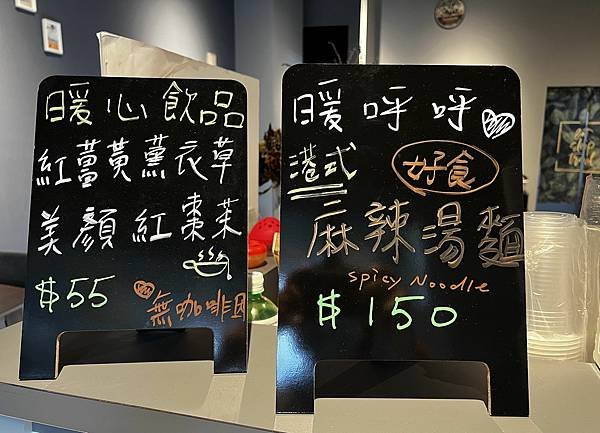 暖心飲品
紅薑黃薰衣草
美顏紅棗茶
$55
無咖啡因
暖呼呼
港式
好食
麻辣湯麵
Spicy Noodle
$150